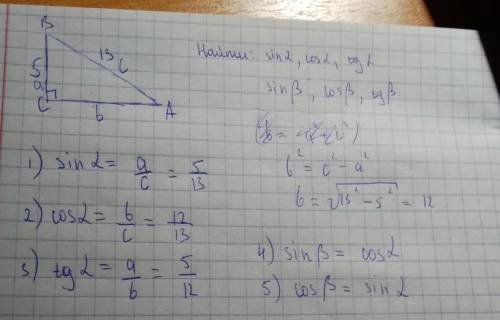 B
13
c
5
a
C
b
A
Найти: sin α, cos α, tg α
sin β, cos β, tg β
b² = c² - a²
b = √13² - 5² = 12
1) sin α = a/c = 5/13
2) cos α = b/c = 12/13
3) tg α = a/b = 5/12
4) sin β = cos α
5) cos β = sin α